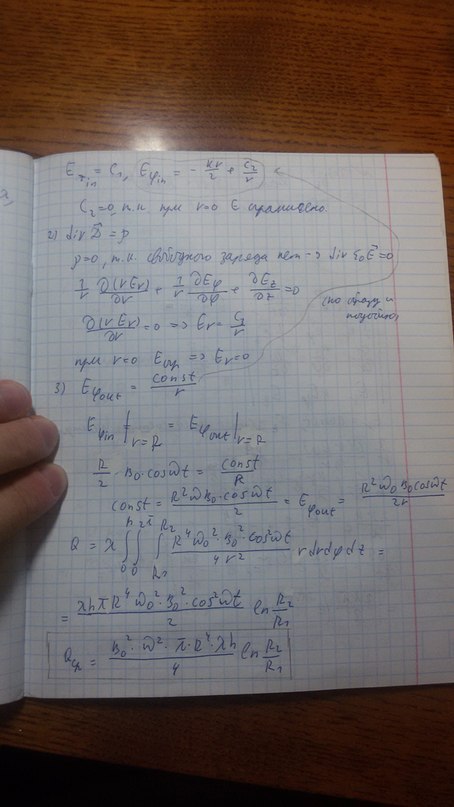 E_{z in} = C_1, E_{φ in} = -\frac{kr}{2} + \frac{C_2}{r}
C_2 = 0, т.к. при r=0 E ограничено.
2) div \vec{D} = ρ
ρ=0, т.к. свободного заряда нет -> div ε_0\vec{E} = 0
\frac{1}{r} \frac{∂(rE_r)}{∂r} + \frac{1}{r} \frac{∂E_φ}{∂φ} + \frac{∂E_z}{∂z} = 0
\frac{∂(rE_r)}{∂r} = 0 => E_r = \frac{C_3}{r}
(но сразу и
при r=0 E огр => E_r = 0
3) E_{φ out} = \frac{const}{r}
E_{φ in}|_{r=R} = E_{φ out}|_{r=R}
\frac{R}{2} · B_0 · cos ωt = \frac{const}{R}
const = \frac{R^2 ω B_0 · cos ωt}{2} = E_{φ out} = \frac{R^2 ω_0 B_0 cos ωt}{2r}
Q = λ \int_0^h \int_0^{2π} \int_{R_1}^{R_2} \frac{R^4 ω_0^2 · B_0^2 · cos^2 ωt}{4 r^2} r dr dφ dz =
= \frac{λhπR^4 ω_0^2 · B_0^2 · cos^2 ωt}{2} ln \frac{R_2}{R_1}
Q_{ср} = \frac{B_0^2 · ω^2 · π · R^4 · λh}{4} ln \frac{R_2}{R_1}